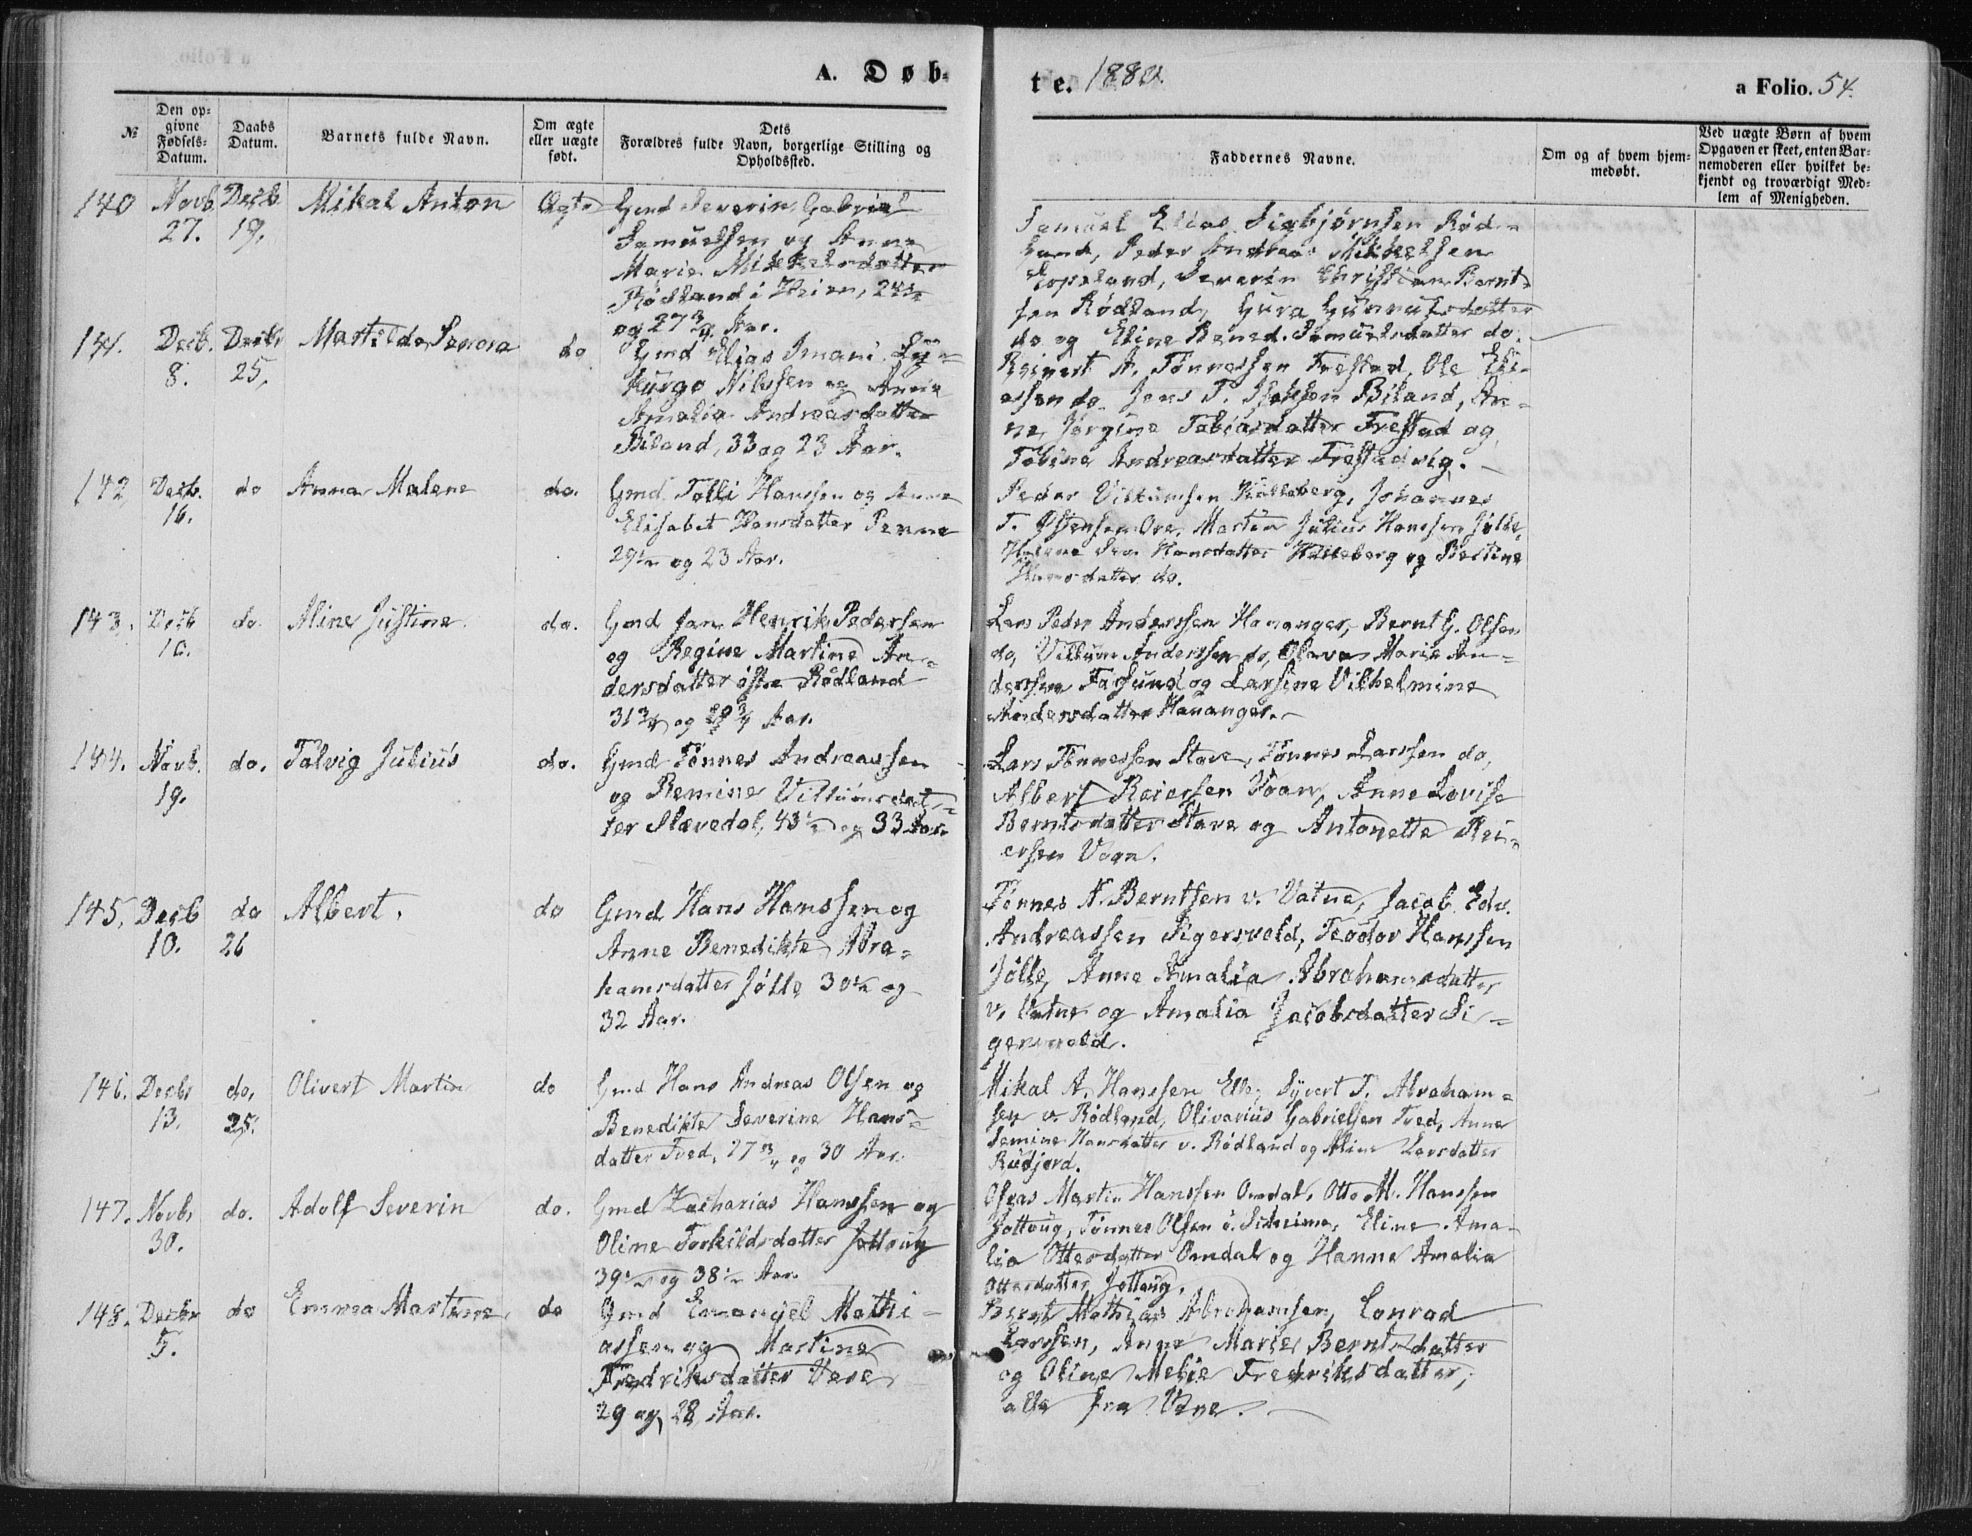 A. Døb-
te. 1880.
a Folio. 54.
№
Den op-
givne
Fødsels-
Datum.
Daabs
Datum.
Barnets fulde Navn.
Om ægte
eller uægte
født.
Dets
Forældres fulde Navn, borgerlige Stilling og
Opholdssted.
Faddernes Navne.
Om og af hvem hjem-
medøbt.
Ved uægte Børn af hvem
Opgaven er skeet, enten Bar-
nemoderen eller hvilket be-
kjendt og troværdigt Med-
lem af Menigheden.
140 Novb. Decb. Mikal Anton Ægte Gmd Severin Gabriel
27. 19.
Samuelsen og Anne
Marie Mikkelsdatter
Rødland i Heien, 24½
og 27¾ Aar.
Samuel Elias Sigbjørnsen Rød-
land, Peder Andreas Mikkelsen
Topeland, Severin Christian Bernt-
sen Rødland, Gura Gunnulsdatter
do og Eline Bened. Samuelsdatter do.
141. Decb. Decbr do Gmd Elias Imani
8. 25.
Nilssen og Anne
Amalia Andreasdatter
Biland, 33 og 23 Aar.
Reinert A. Tønnessen Frestad, Ole Eli-
assen do. Jens T. Biland, An-
ne Jørgine Tobiasdatter Frestad og
Tobine Andreasdatter Frestadvig.
142 Decb. do Anna Malene do. Gmd Tolli Hanssen og Anne
16.
Elisabet Hansdatter Penne
29½ og 23 Aar.
Peder Villumsen Kalleberg, Johannes
T. Ore, Martin Julius Hanssen Jølle,
Hansdatter Kalleberg og Bertine
Hansdatter do.
143. Decb do. Aline Justine. do. Gmd Jan Henrik Pedersen
10.
og Regine Martine An-
dersdatter østre Rødland
31¾ og 29¾ Aar.
Lars Peder Anderssen Hananger, Bernt G. Olsen
do, Villum Anderssen do, Olava Marie An-
derssen Farsund og Larsine Vilhelmine
Andersdatter Hananger.
144. Novb. do. Talvig Julius do. Gmd Tønnes Andreassen
19.
og Remine Villumsdat-
ter Slævedal, 43½ og 33 Aar.
Lars Tønnessen Stave, Tønnes Larssen do,
Albert Reiersen Vaan, Anne Lovise
Berntsdatter Stave og Antonette Rei-
ersen Vaan.
145. Decb do Albert. do Gmd Hans Hanssen og
10. 26
Anne Benedikte Abra-
hamsdatter Jølle 30½ og
32 Aar.
Tønnes N. Berntsen v. Vatne, Jacob Edv.
Andreassen Sigersvold, Teodor Hanssen
Jølle, Anne Amalia Abrahamsdatter
v. Vatne og Amalia Jacobsdatter Si-
gersvold.
146. Decbr do. Olivert Martin do Gmd Hans Andreas Olsen og
13. 25.
Benedikte Severine Hans-
datter Tved, 27¾ og 30 Aar.
Mikal A. Hanssen Elle, Syvert T. Abraham-
sen v. Rødland, Olivarius Gabrielsen Tved, Anne
Semine Hansdatter v. Rødland og Aline Larsdatter
Rudjord.
147. Novbr do. Adolf Severin do. Gmd Zacharias Hanssen og
30.
Oline Torkildsdatter Jøllaug
39½ og 38½ Aar.
Martin Hanssen Omdal, Otto M. Hanssen
Jøllaug, Tønnes Olsen Eline Ama-
lia Ottersdatter Omdal og Hanne Amalia
Ottersdatter Jøllaug.
148. Decbr do Emma Martine do Gmd Emanuel Mathi-
5.
assen og Martine
Fredriksdatter Vere
29 og 28 Aar.
Bernt Mathias Abrahamsen, Conrad
Larssen, Anne Marie Berntsdatter
og Oline Melie Fredriksdatter,
alle fra Vere.